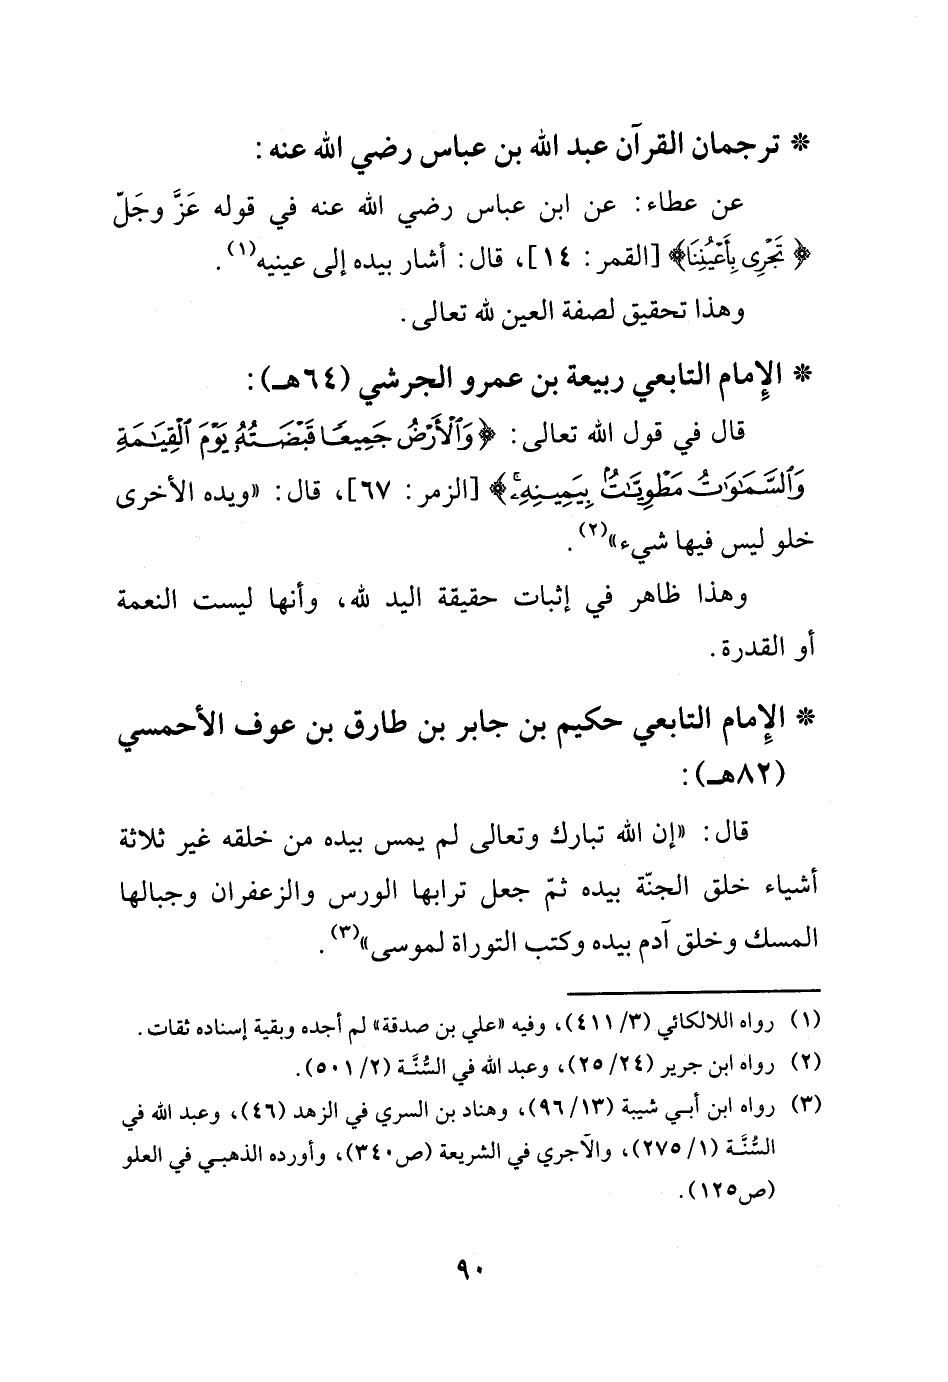 * ترجمان القرآن عبد الله بن عباس رضي الله عنه:
عن عطاء: عن ابن عباس رضي الله عنه في قوله عَزَّ وجَلّ
﴿تَجْرِى بِأَعْيُنِنَا﴾ [القمر: ١٤]، قال: أشار بيده إلى عينيه(١).
وهذا تحقيق لصفة العين لله تعالى.
* الإمام التابعي ربيعة بن عمرو الجرشي (٦٤هـ):
قال في قول الله تعالى: ﴿وَٱلْأَرْضُ جَمِيعًا قَبْضَتُهُۥ يَوْمَ ٱلْقِيَٰمَةِ
وَٱلسَّمَٰوَٰتُ مَطْوِيَّٰتٌۢ بِيَمِينِهِۦۚ﴾ [الزمر: ٦٧]، قال: «ويده الأخرى
خلو ليس فيها شيء»(٢).
وهذا ظاهر في إثبات حقيقة اليد لله، وأنها ليست النعمة
أو القدرة.
* الإمام التابعي حكيم بن جابر بن طارق بن عوف الأحمسي
(٨٢هـ):
قال: «إن الله تبارك وتعالى لم يمس بيده من خلقه غير ثلاثة
أشياء خلق الجنّة بيده ثمّ جعل ترابها الورس والزعفران وجبالها
المسك وخلق آدم بيده وكتب التوراة لموسى»(٣).
(١) رواه اللالكائي (٣/ ٤١١)، وفيه «علي بن صدقة» لم أجده وبقية إسناده ثقات.
(٢) رواه ابن جرير (٢٤/ ٢٥)، وعبد الله في السُّنَّة (٢/ ٥٠١).
(٣) رواه ابن أبي شيبة (١٣/ ٩٦)، وهناد بن السري في الزهد (٤٦)، وعبد الله في
السُّنَّة (١/ ٢٧٥)، والآجري في الشريعة (ص٣٤٠)، وأورده الذهبي في العلو
(ص١٢٥).
٩٠